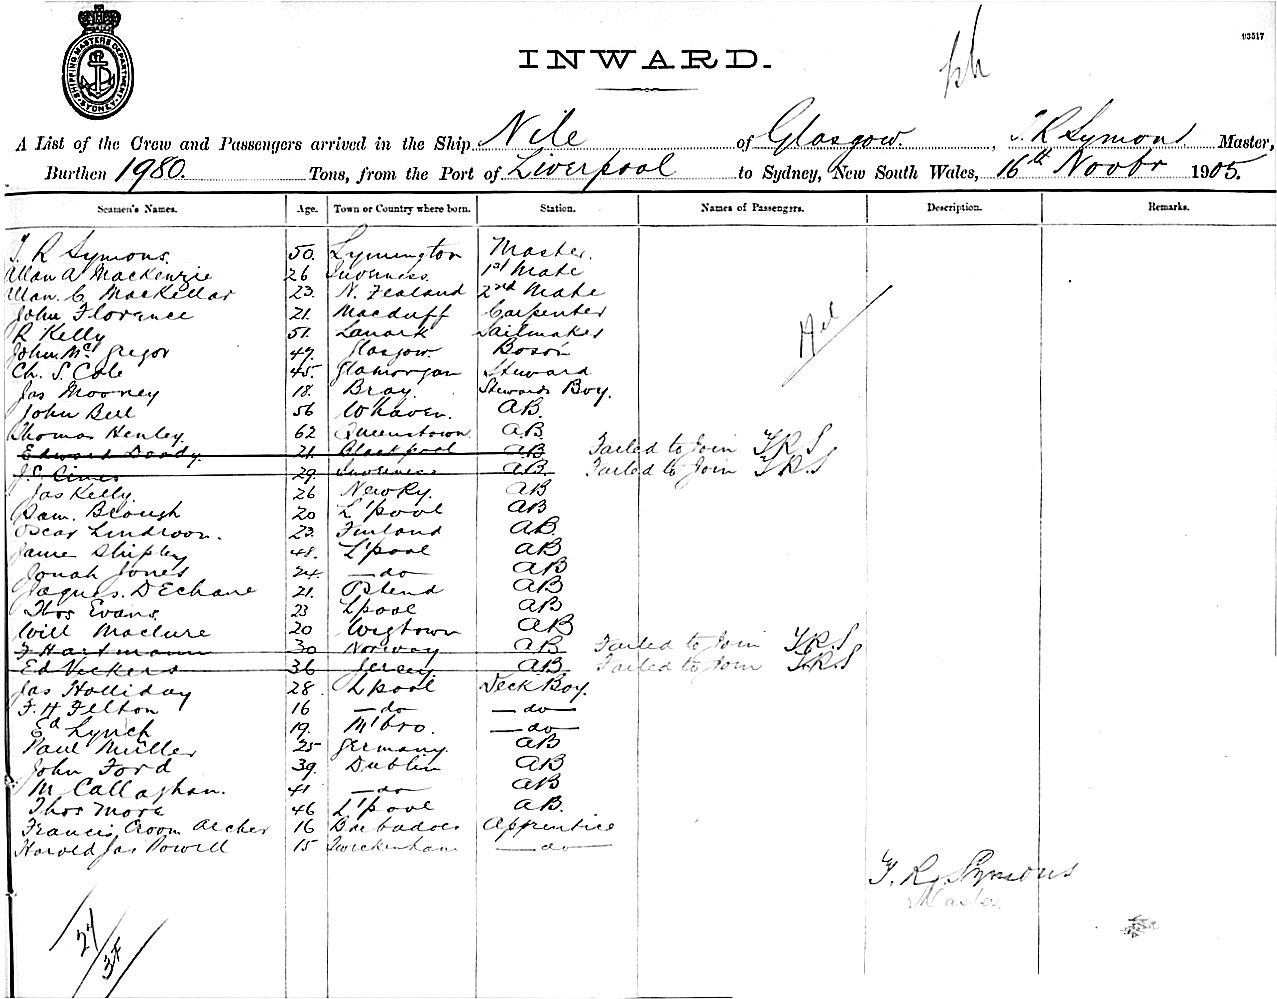 SHIPPING MASTERS DEPARTMENT SYDNEY
93517
INWARD.
A List of the Crew and Passengers arrived in the Ship Nile of Glasgow. , T R Symons Master,
Burthen 1980. Tons, from the Port of Liverpool to Sydney, New South Wales, 16th Novbr 1905.
Seamen's Names. Age. Town or Country where born. Station. Names of Passengers. Description. Remarks.
T. R Symons. 50. Lymington Master.
Allan A Mackenzie 26 Inverness. 1st Mate
Allan. C. MacKellar 23. N. Zealand 2nd Mate
John Florence 21. Macduff Carpenter
R Kelly 51. Lanark Sailmaker
John McGregor 49. Glasgow. Bosơn
Ch. S. Cole 45. Glamorgan Steward
Jas Mooney 18. Bray. Stewards Boy.
John Bell 56 Whaven. AB.
Thomas Henley. 62 Queenstown AB.
Edward Doody. 21. Blackpool AB Failed to Join T.R.S
29. Inverness AB. Failed to Join T.R.S
Jas Kelly. 26 New Ry. AB
Sam. Blough 20 L'pool AB
Oscar Lindroon. 23. Finland AB.
Jame Shipley 48. L'pool AB
Jonah Jones 24. —do— AB
Jaques. DEchane 21. Ostend AB
Thos Evans. 23 Lpool AB
Will Maclure 20 Wigtown AB
F Hartmann 30 Norway AB Failed to Join T.R.S
Ed Vickers 36 Jersey. AB. Failed to Join T.R.S
Jas Holliday 28. Lpool Deck Boy.
F. H Felton 16 —do— —do—
Ed Lynch 19. M'bro. —do—
Paul Müller 25 Germany. AB
John Ford 39. Dublin AB
M Callaghan. 41 —do— AB
Thos More 46 L'pool AB.
Francis Croom Archer 16 Barbadoes Apprentice
Harold Jas Powell 15 Twickenham —do—
T. R. Symons
Master.